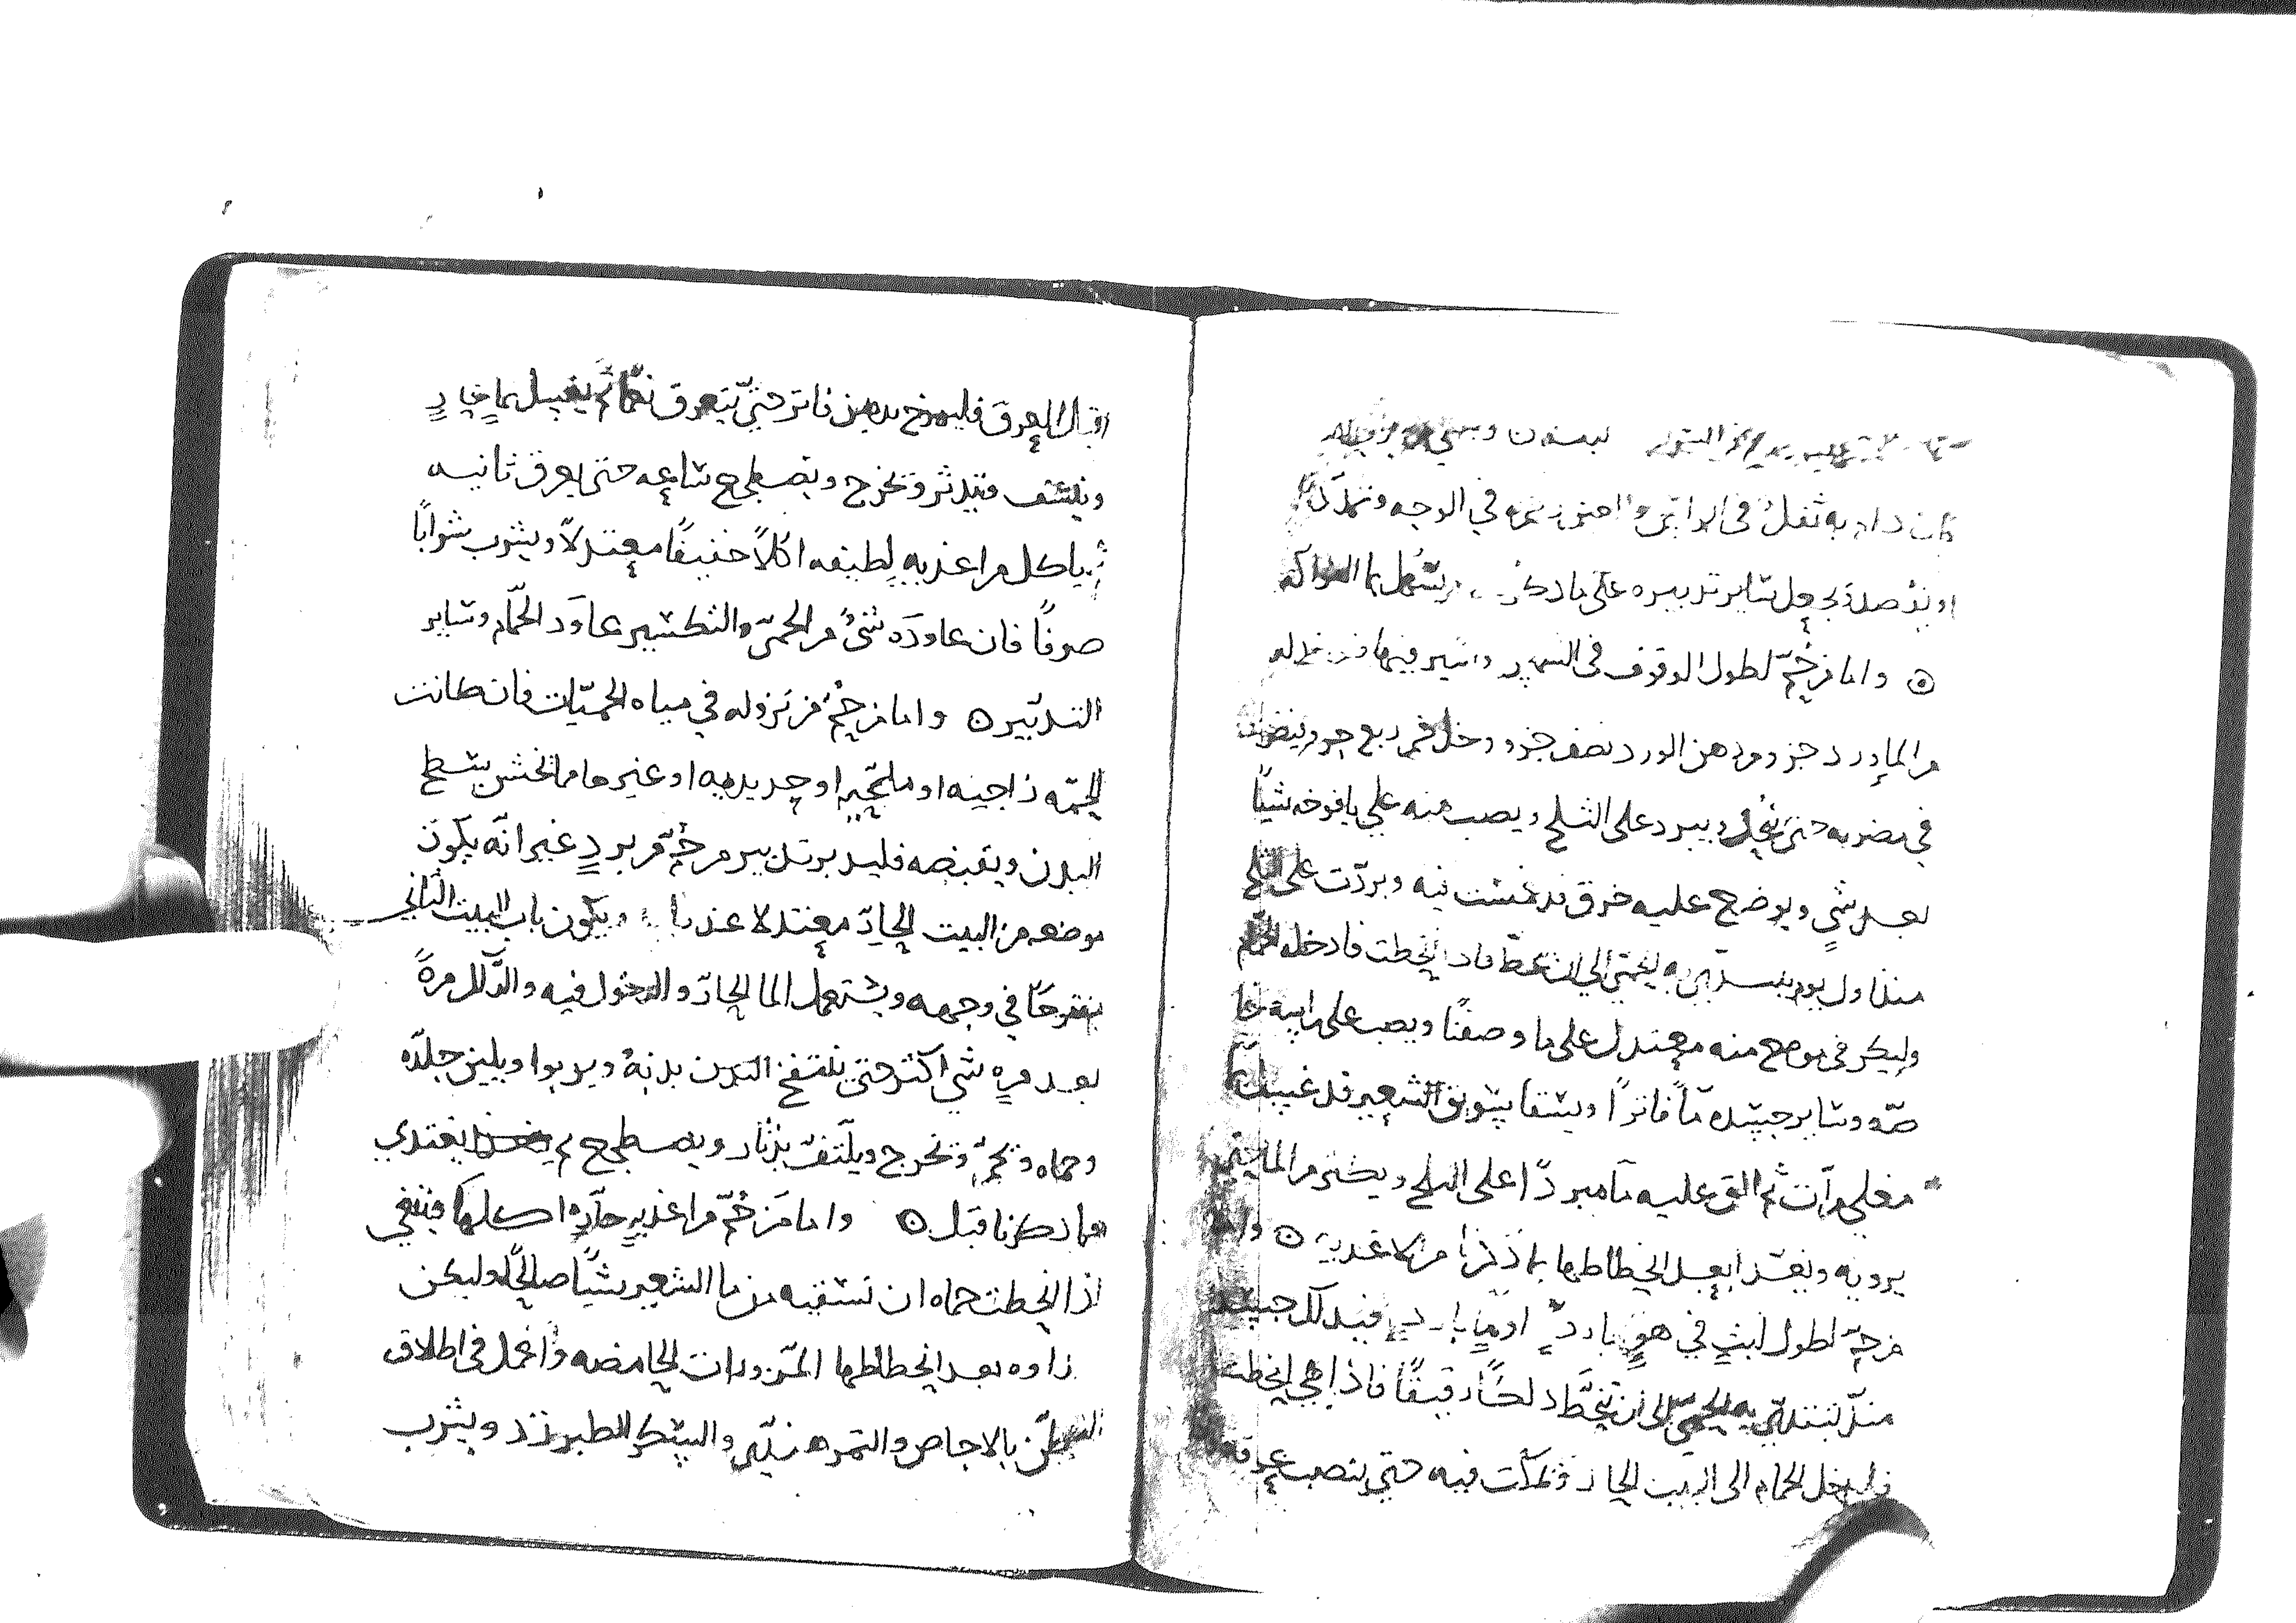 فان دام به ثقل في الراس واحتزز نمره في الوجه وتمدد
او بد صدغ يجعل ساير تدبيره على ما ذكر ويسهل بما الفواكه
⊙ واما من حم لطول الوقوف في الشمس والسير فيها
من الماورد جزو ودهن الورد نصف جزو وخل خمر ربع جزو ويضرب
في مضربه حتى ينحل ويبرد على الثلج ويصب منه على يافوخه شيا
بعد شي ويوضع عليه خرق قد غمست فيه وبردت على الثلج
منذ اول يوم يبتدي به الحمى الى ان تنحط فاذا انحطت فادخله الحمام
وليكن في موضع منه معتدل على ما وصفنا ويصب على راسه خا
صه وساير جسده ما فاترا ويسقا سويق الشعير قد غسل بما
مغلي مرات ثم القى عليه ما مبردا على الثلج ويكثر من الما حتى
يرويه ويغتدا بعد انحطاطها بما ذكرنا من الاغديه ⊙ واما
من حم لطول لبث في هوٍ بارد او ماٍ باردٍ فيدلك جسده
منذ تبتدي به الحمى الى ان تنحط دلكا رقيقا فاذا هي انحطت
فليدخل الحمام الى البيت الحار ويمكث فيه حتى ينصب عرقه
اقبال العرق فليمرخ بدهن فاتر حتى يتعرق نعما ثم يغسل بماٍ حارٍ
وينشف ويتدثر ويخرج ويضطجع ساعه حتى يعرق ثانيه
ثم ياكل من اغذيه لطيفه اكلا خفيفا معتدلا ويشرب شرابا
صرفا فان عاوده شئ من الحمى والتكسير عاود الحمام وساير
التدبير ⊙ واما من حم من نزوله في مياه الحميات فان كانت
الحمه زاجيه او ملحيه او حديديه او غيرها مما يخشن بسطح
البدن ويقبضه فليدبر تدبير من حم من برد غير انه يكون
موضعه من البيت الحار معتدلا عذبا ويكون باب البيت الثاني
مفتوحا في وجهه ويستعمل الما الحار والدخول فيه والدلك مره
بعد مره شي اكثر حتى ينتفخ البدن بدنه ويربوا ويلين جلده
وحماه ويحمر ويخرج ويلتف بدثار ويضطجع ثم يغتدي
بما ذكرنا قبل ⊙ واما من حم من اغذيه حاره اكلها فينبغي
اذا انحطت حماه ان تسقيه من ما الشعير شيا صالحا وليكن
زاوه بعد انحطاطها المزورات الحامضه واعمل في اطلاق
البطن بالاجاص والتمر هندي والسكر الطبرزد ويشرب